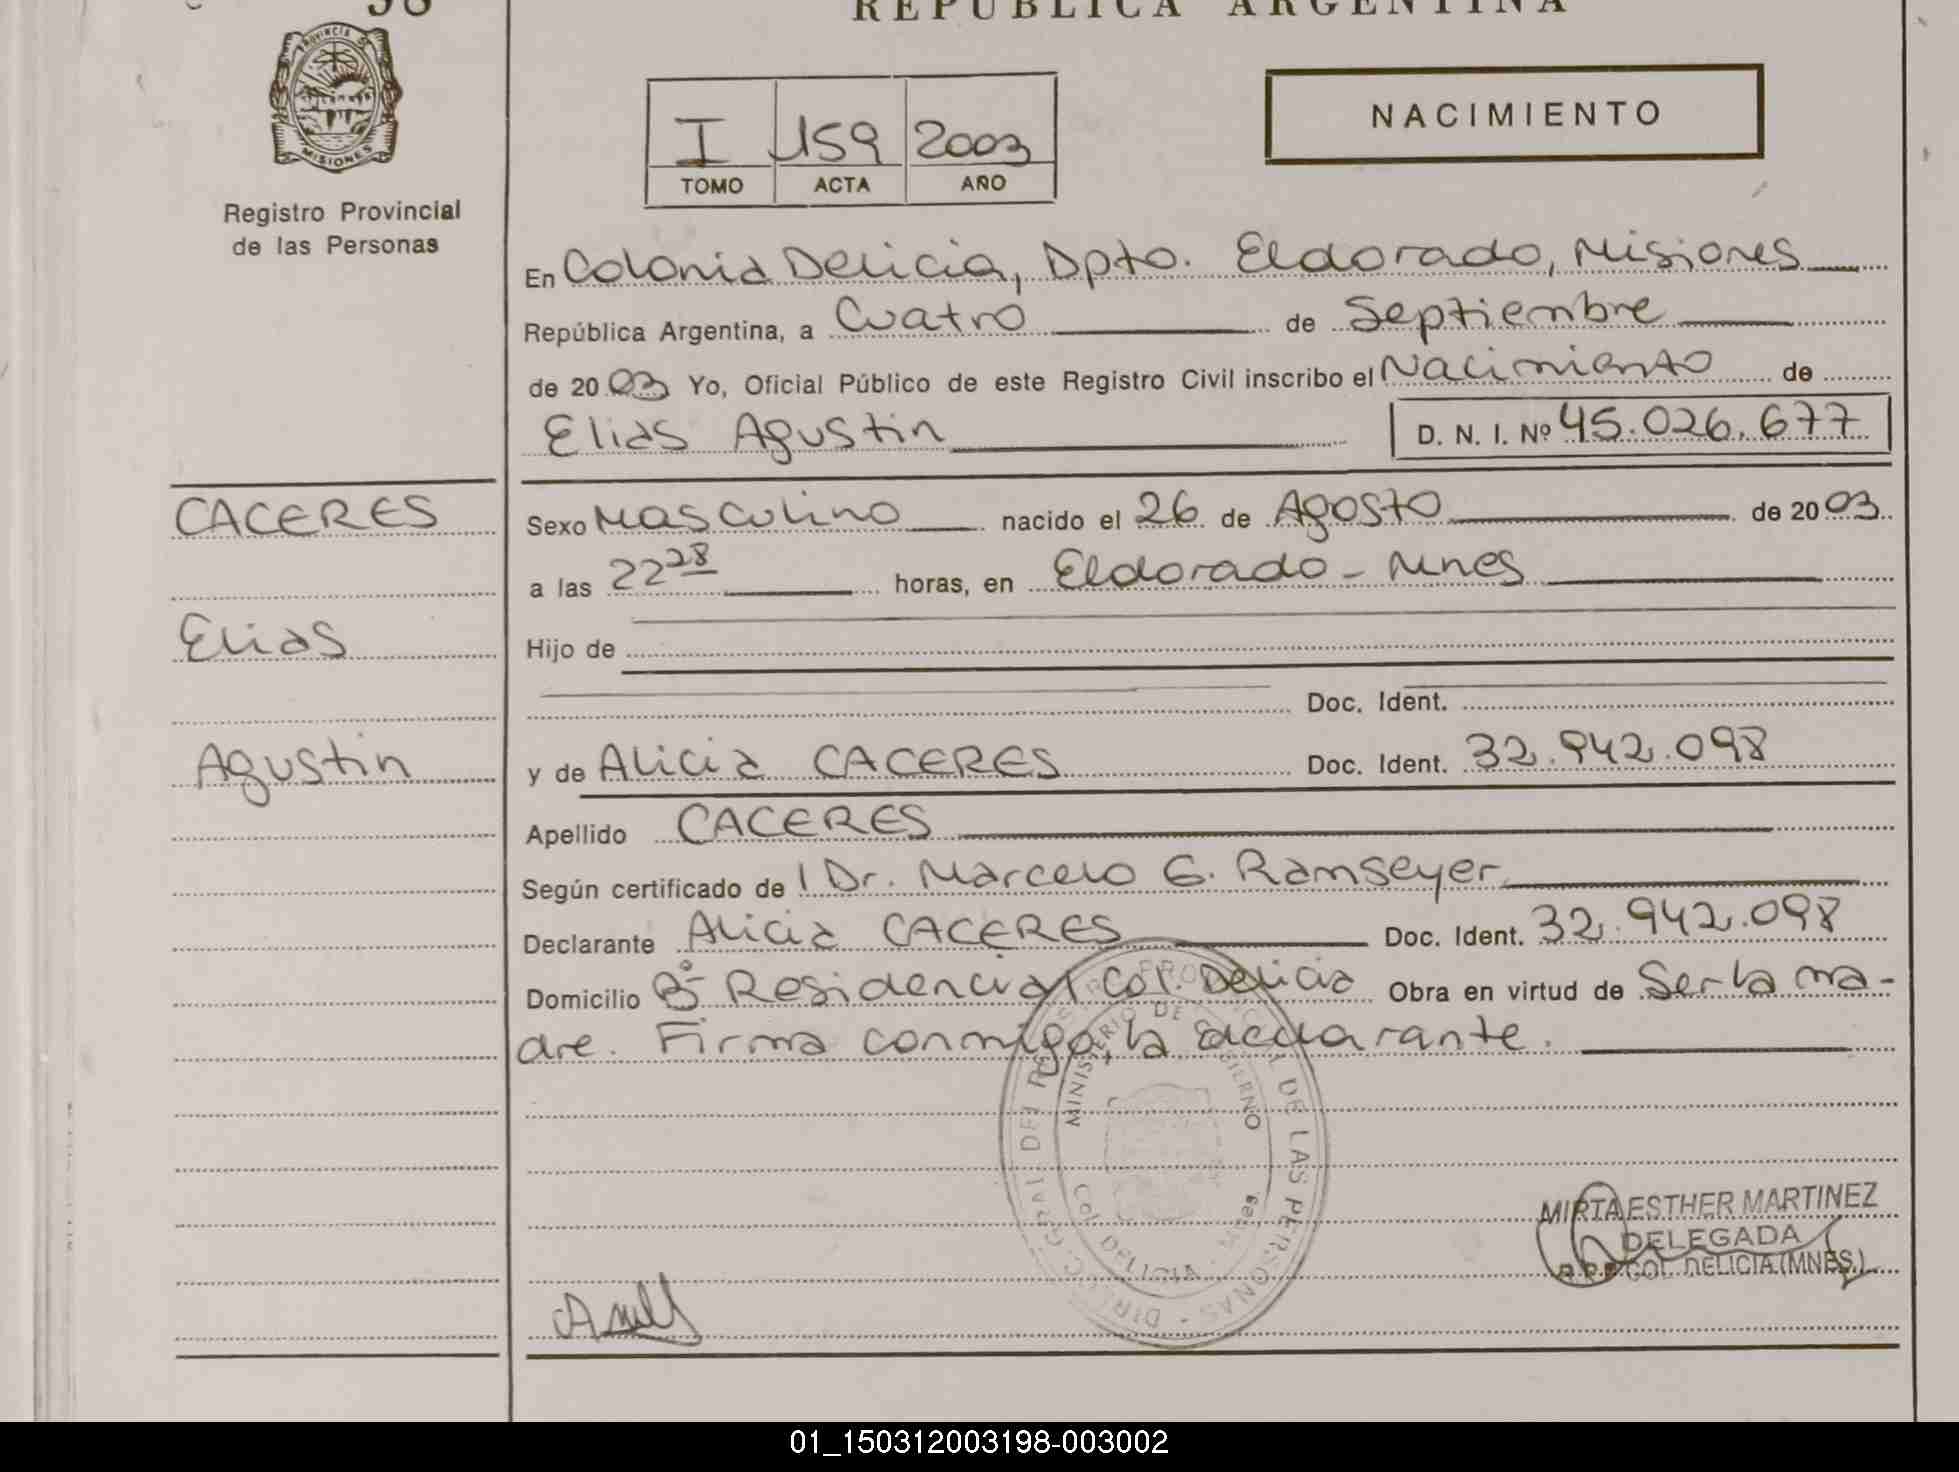 REPUBLICA ARGENTINA
PROVINCIA DE
MISIONES
Registro Provincial
de las Personas
I 159 2003
TOMO ACTA AÑO
NACIMIENTO
En Colonia Delicia, Dpto. Eldorado, Misiones
República Argentina, a Cuatro de Septiembre
de 2003 Yo, Oficial Público de este Registro Civil inscribo el Nacimiento de
Elias Agustin D. N. I. Nº 45.026.677
CACERES
Elias
Agustin
Sexo Masculino nacido el 26 de Agosto de 2003
a las 22 28 horas, en Eldorado - Mnes
Hijo de
Doc. Ident.
y de Alicia CACERES Doc. Ident. 32.942.098
Apellido CACERES
Según certificado de Dr. Marcelo G. Ramseyer
Declarante Alicia CACERES Doc. Ident. 32.942.098
Domicilio Bº Residencial Col. Delicia Obra en virtud de Ser la ma-
dre. Firma conmigo, la declarante.
DIREC. GRAL. DEL REGISTRO PROVINCIAL DE LAS PERSONAS
MINISTERIO DE GOBIERNO
Col. DELICIA - Mnes
MIRTA ESTHER MARTINEZ
DELEGADA
R.P.P. COL. DELICIA (MNES.)
01_150312003198-003002